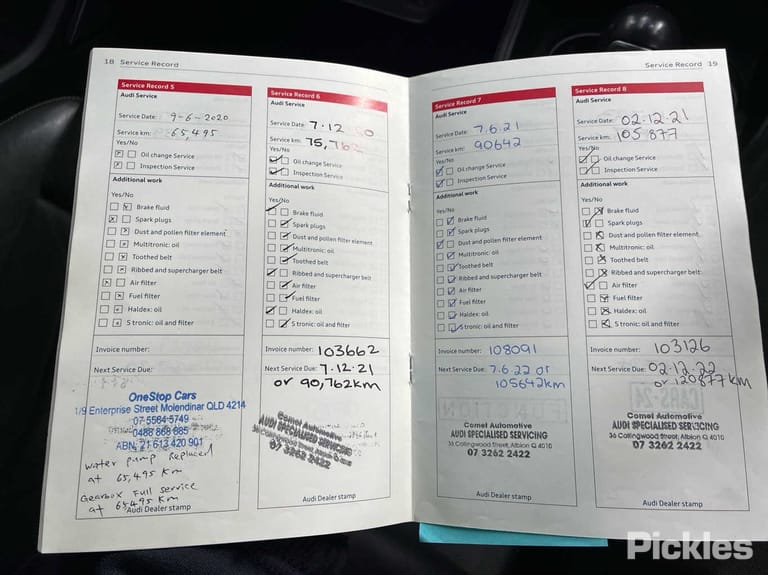 18 Service Record
Service Record 5
Audi Service
Service Date: 9-6-2020
Service km: 65,495
Yes/No
Oil change Service
Inspection Service
Additional work
Yes/No
Brake fluid
Spark plugs
Dust and pollen filter element
Multitronic: oil
Toothed belt
Ribbed and supercharger belt
Air filter
Fuel filter
Haldex: oil
S tronic: oil and filter
Invoice number:
Next Service Due:
OneStop Cars
1/9 Enterprise Street Molendinar QLD 4214
07 5564 5749
0488 868 885
ABN: 21 613 420 901
water pump Replaced
at 65,495 Km
Gearbox Full service
at 65,495 Km
Audi Dealer stamp
Service Record 6
Audi Service
Service Date: 7.12
Service km: 75,762
Yes/No
Oil change Service
Inspection Service
Additional work
Yes/No
Brake fluid
Spark plugs
Dust and pollen filter element
Multitronic: oil
Toothed belt
Ribbed and supercharger belt
Air filter
Fuel filter
Haldex: oil
S tronic: oil and filter
Invoice number: 103662
Next Service Due: 7.12.21
or 90,762km
Comet Automotive
AUDI SPECIALISED SERVICING
36 Collingwood Street, Albion Q 4010
07 3262 2422
Audi Dealer stamp
Service Record 19
Service Record 7
Audi Service
Service Date: 7.6.21
Service km: 90642
Yes/No
Oil change Service
Inspection Service
Additional work
Yes/No
Brake fluid
Spark plugs
Dust and pollen filter element
Multitronic: oil
Toothed belt
Ribbed and supercharger belt
Air filter
Fuel filter
Haldex: oil
S tronic: oil and filter
Invoice number: 108091
Next Service Due: 7.6.22 or
105642km
Comet Automotive
AUDI SPECIALISED SERVICING
36 Collingwood Street, Albion Q 4010
07 3262 2422
Audi Dealer stamp
Service Record 8
Audi Service
Service Date: 02.12.21
Service km: 105877
Yes/No
Oil change Service
Inspection Service
Additional work
Yes/No
Brake fluid
Spark plugs
Dust and pollen filter element
Multitronic: oil
Toothed belt
Ribbed and supercharger belt
Air filter
Fuel filter
Haldex: oil
S tronic: oil and filter
Invoice number: 103126
Next Service Due: 02.12.22
or 120877km
Comet Automotive
AUDI SPECIALISED SERVICING
36 Collingwood Street, Albion Q 4010
07 3262 2422
Audi Dealer stamp
Pickles